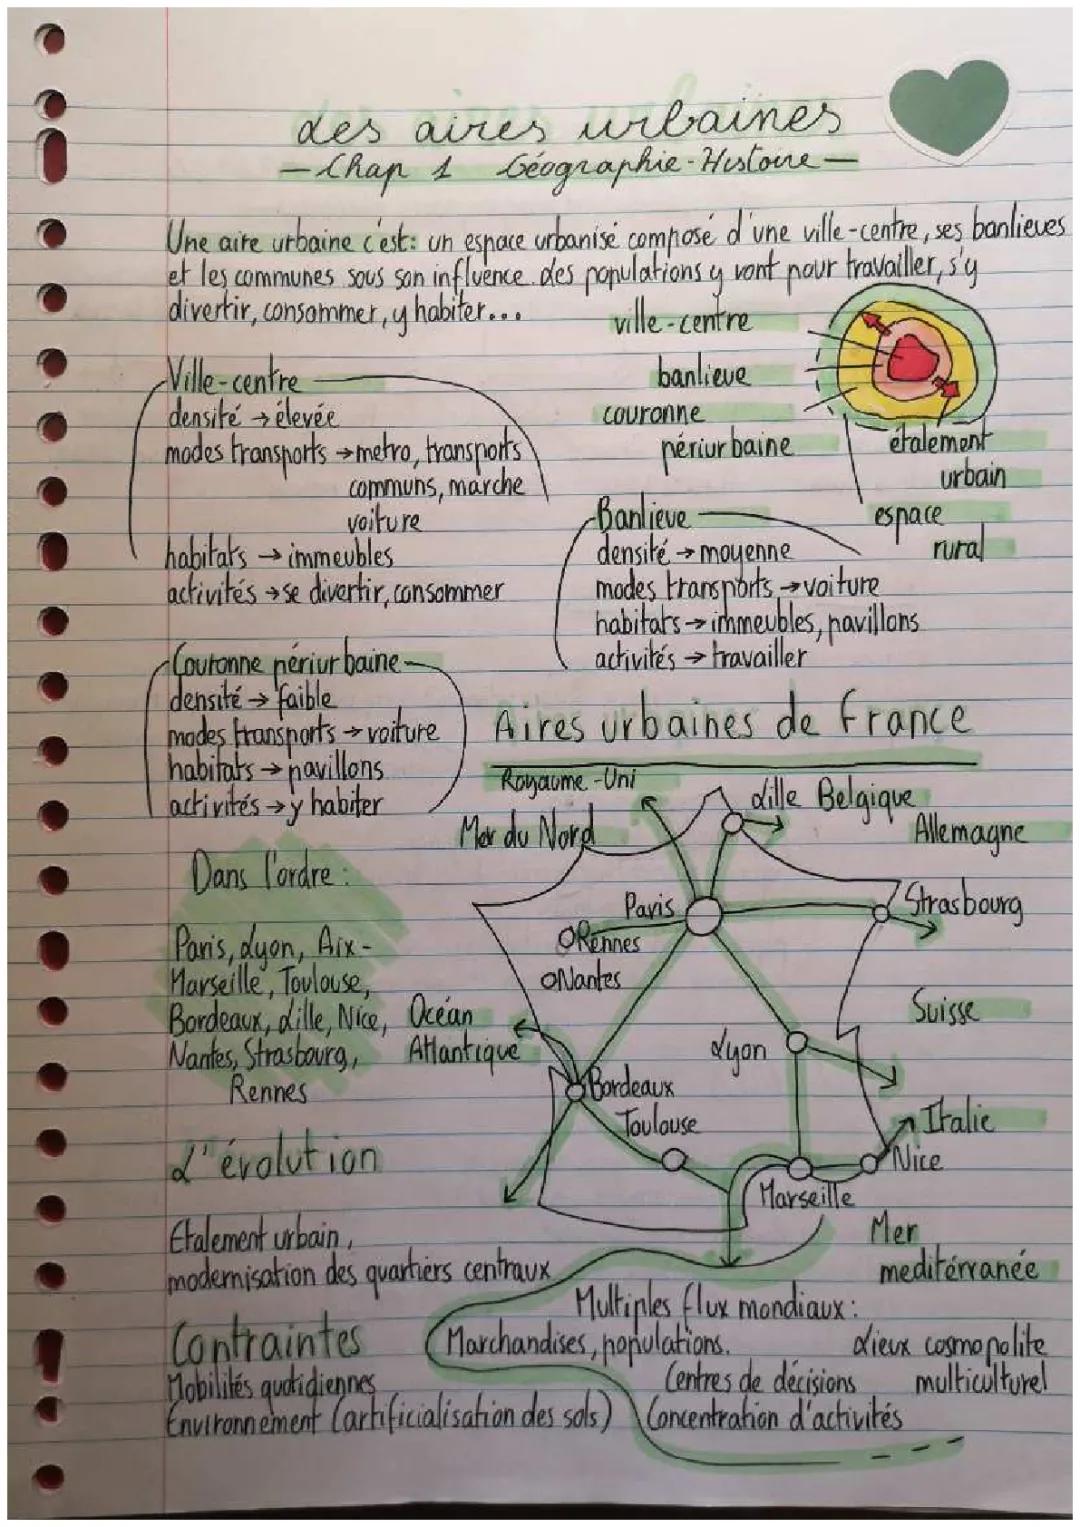 Les aires urbaines
— Chap 1 Géographie-Histoire —
Une aire urbaine c'est: un espace urbanisé composé d'une ville-centre, ses banlieues
et les communes sous son influence. des populations y vont pour travailler, s'y
divertir, consommer, y habiter...
ville-centre
banlieue
couronne
périurbaine
étalement
urbain
espace
rural
Ville-centre
densité → élevée
modes transports → metro, transports
communs, marche
voiture
habitats → immeubles
activités → se divertir, consommer
Banlieue
densité → moyenne
modes transports → voiture
habitats → immeubles, pavillons
activités → travailler
Couronne périurbaine
densité → faible
modes transports → voiture
habitats → pavillons
activités → y habiter
Aires urbaines de France
Royaume-Uni
Mer du Nord
Lille Belgique
Allemagne
Paris
Strasbourg
Rennes
Nantes
Océan
Atlantique
Lyon
Suisse
Bordeaux
Toulouse
Italie
Nice
Marseille
Mer
mediterranée
Dans l'ordre:
Paris, Lyon, Aix-
Marseille, Toulouse,
Bordeaux, Lille, Nice,
Nantes, Strasbourg,
Rennes
L'évolution
Etalement urbain,
modernisation des quartiers centraux
Contraintes
Mobilités quotidiennes
Environnement (artificialisation des sols)
Multiples flux mondiaux:
Marchandises, populations.
Lieux cosmopolite
multiculturel
Centres de décisions
Concentration d'activités